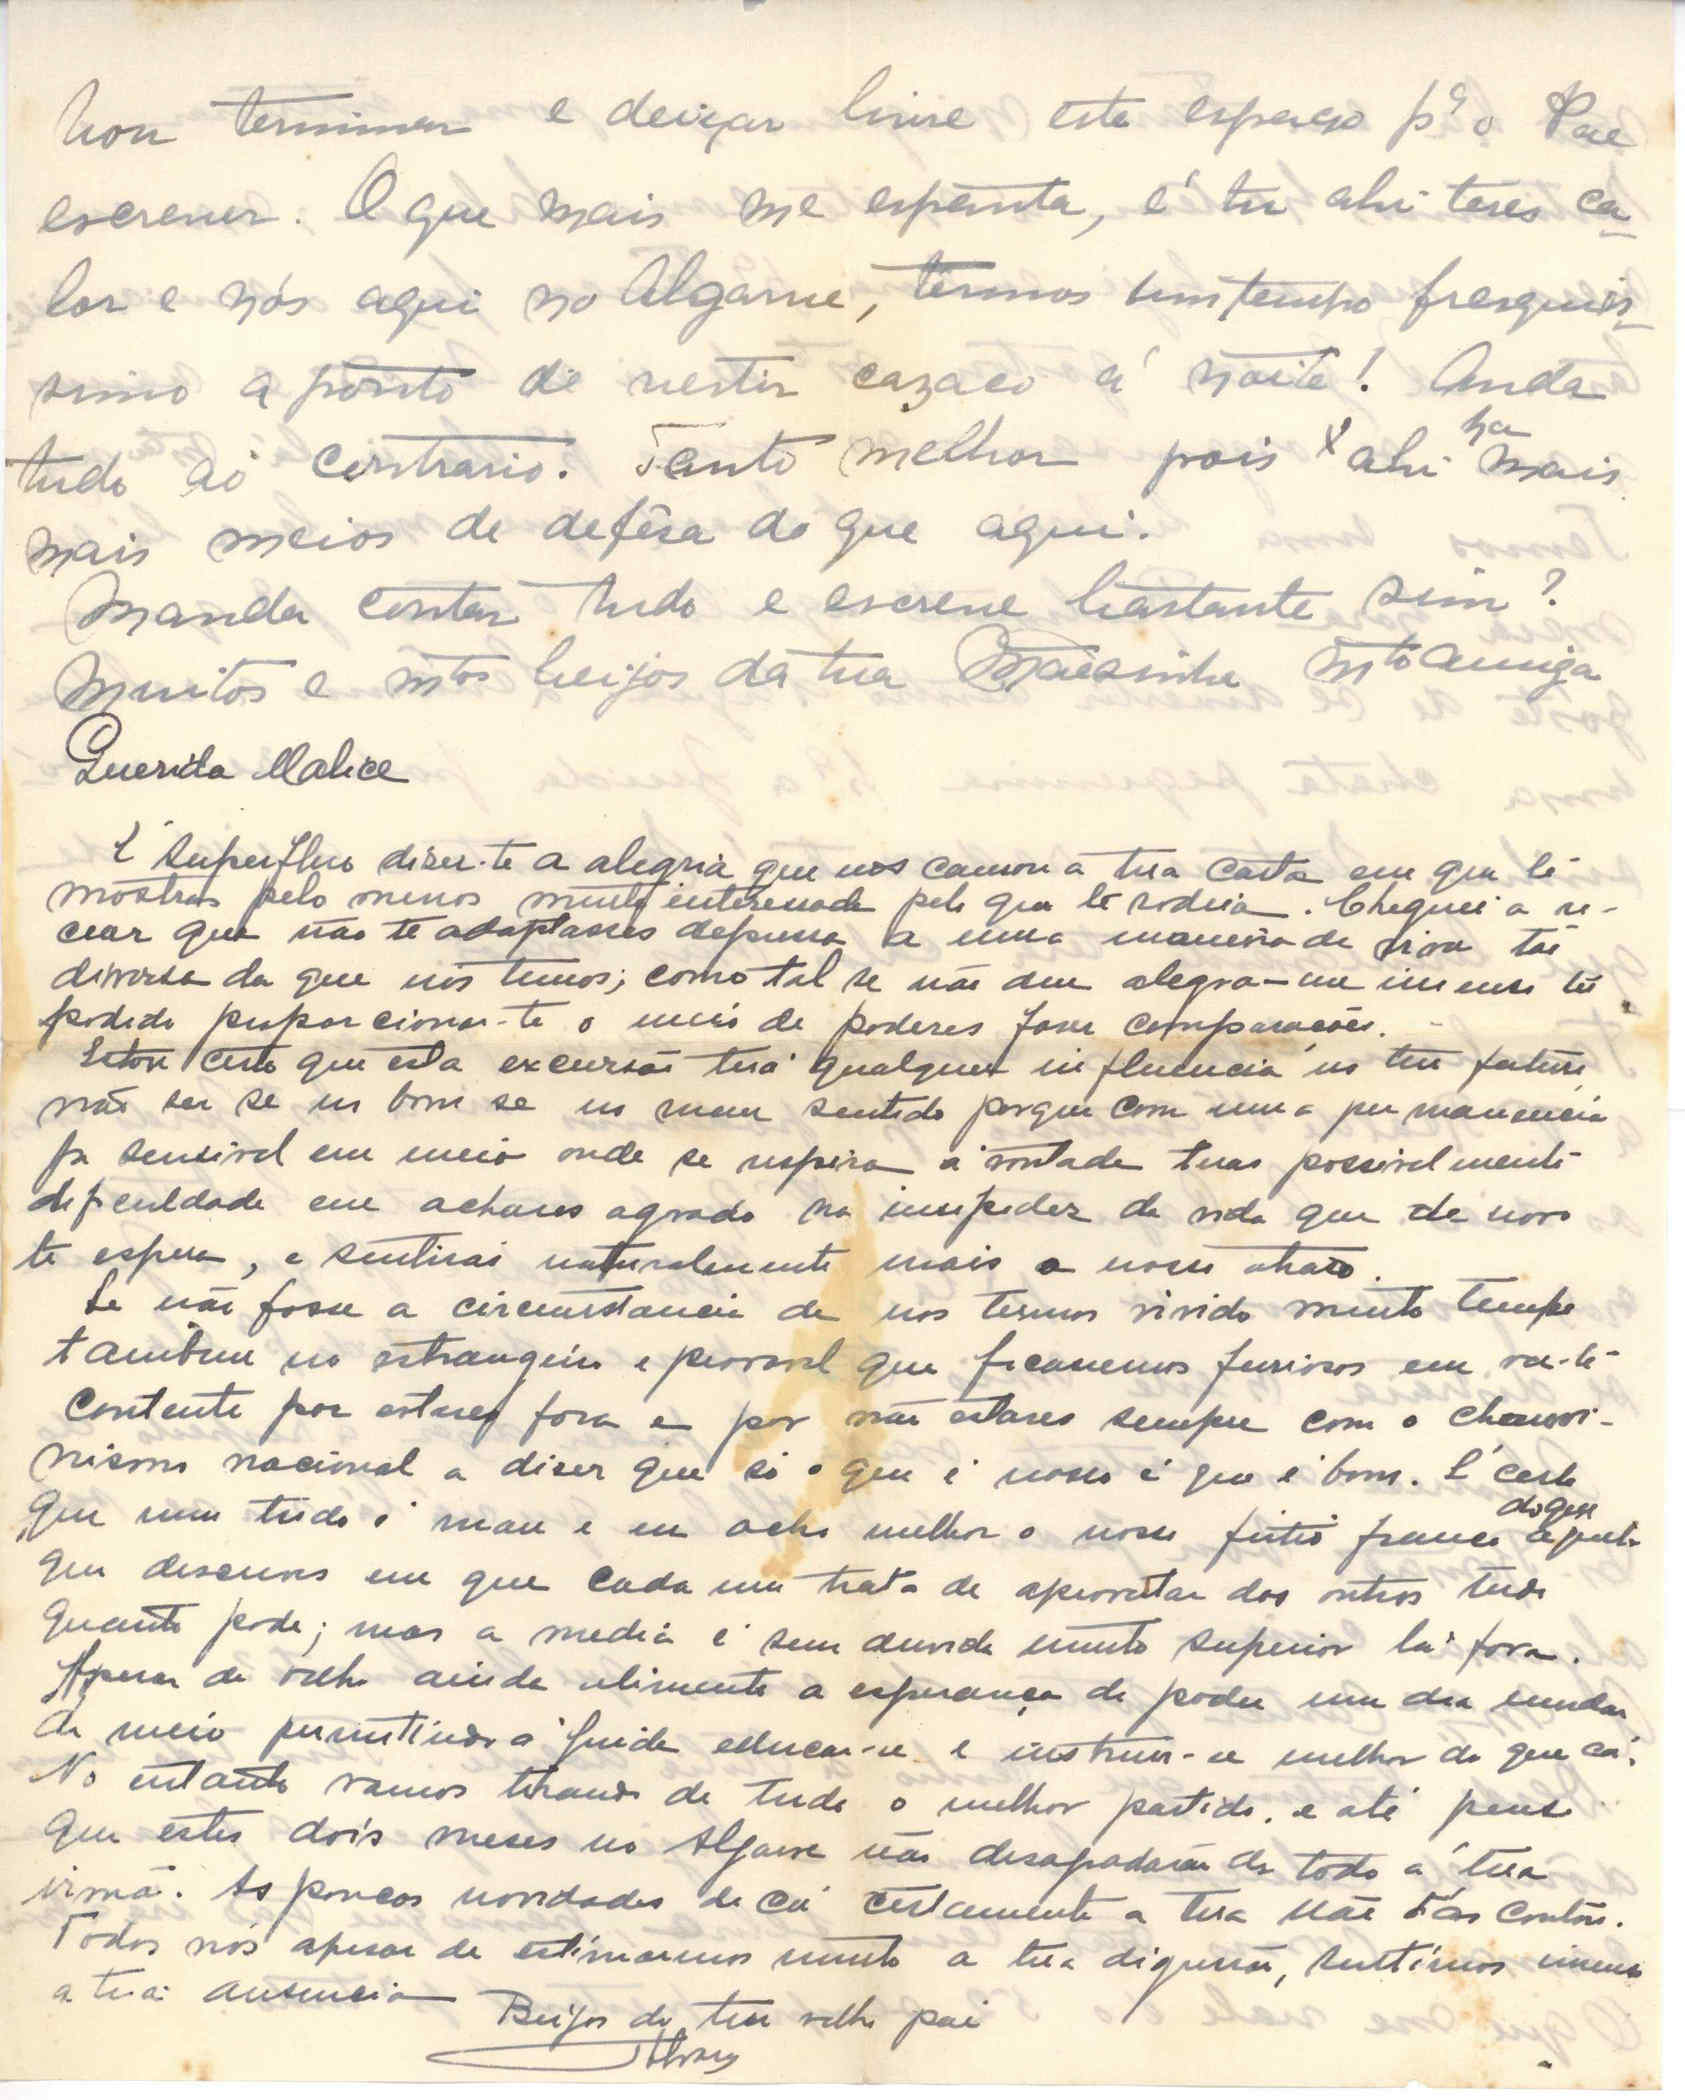 Vou terminar e deixar livre este espaço pª o Pae
escrever. O que mais me espanta, é tu ahi teres ca-
lor e nós aqui no Algarve, termos um tempo fresquis-
simo a ponto de vestir cazaco á noite! Anda
tudo ao contrario. Tanto melhor pois ahi ha mais
mais meios de defêsa do que aqui.
Manda contar tudo e escreve bastante sim?
Muitos e mtos beijos da tua Mãesinha mto amiga
Querida Malice
É superfluo dizer-te a alegria que nos causou a tua carta em que te
mostras pelo menos muito interessada pelo que te rodeia. Cheguei a re-
cear que não te adaptasses depressa a uma maneira de viver tão
diversa da que nós temos; como tal se não deu alegra-me imenso ter
podido proporcionar-te o meio de poderes fazer comparações.
Estou certo que esta excursão terá qualquer influencia no teu futuro
não sei se no bom se no mau sentido porque com uma permanencia
já sensivel em meio onde se respira á vontade teras possivelmente
dificuldade em achares agrado na insipidez da vida que de novo
te espera, e sentirás naturalmente mais o nosso atrazo.
Se não fosse a circumstancia de nós termos vivido muito tempo
tambem no estrangeiro e provavel que ficassemos furiosos em ver-te
contente por estares fora e por não estares sempre com o chauvi-
nismo nacional a dizer que só o que é nosso é que é bom. É certo
que nem tudo é mau e eu acho melhor o nosso feitio franco do que aquele
que descreves em que cada um trata de aproveitar dos outros tudo
quanto pode; mas a media é sem duvida muito superior lá fora.
Apesar de velho ainda alimento a esperança de poder um dia mudar
de meio permitindo á Guida educar-se e instruir-se melhor do que cá.
No entanto vamos tirando de tudo o melhor partido, e até penso
que estes dois meses no Algarve não desagradarão de todo á tua
irmã. As poucas novidades de cá certamente a tua Mãe t'as contou.
Todos nós apesar de estimarmos muito a tua digressão, sentimos imenso
a tua ausencia
Beijos do teu velho pai